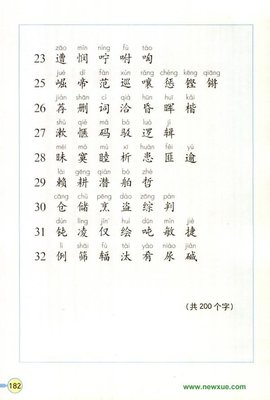 zāo mǐn níng fù táo
23 遭 悯 咛 咐 啕
jué dì fàn xún rǎng chéng kēng qiāng
25 崛 帝 范 巡 嚷 惩 铿 锵
jiàn shān cí qià hūn huī kǎi
26 荐 删 词 洽 昏 晖 楷
shù qiè mǎ bó luó jí
27 漱 惬 码 驳 逻 辑
mèi mò mù xī huàn fěi yú
28 昧 寞 睦 析 患 匪 逾
lài gēng qián bó zhé
29 赖 耕 潜 舶 哲
cāng chǔ pēng dào zōng pàn
30 仓 储 烹 盗 综 判
dùn líng jǐn huì dūn mǐn jié
31 钝 凌 仅 绘 吨 敏 捷
lì shāi fú tài yáo niào jiǎn
32 例 筛 辐 汰 肴 尿 碱
(共 200 个字)
182
www.newxue.com